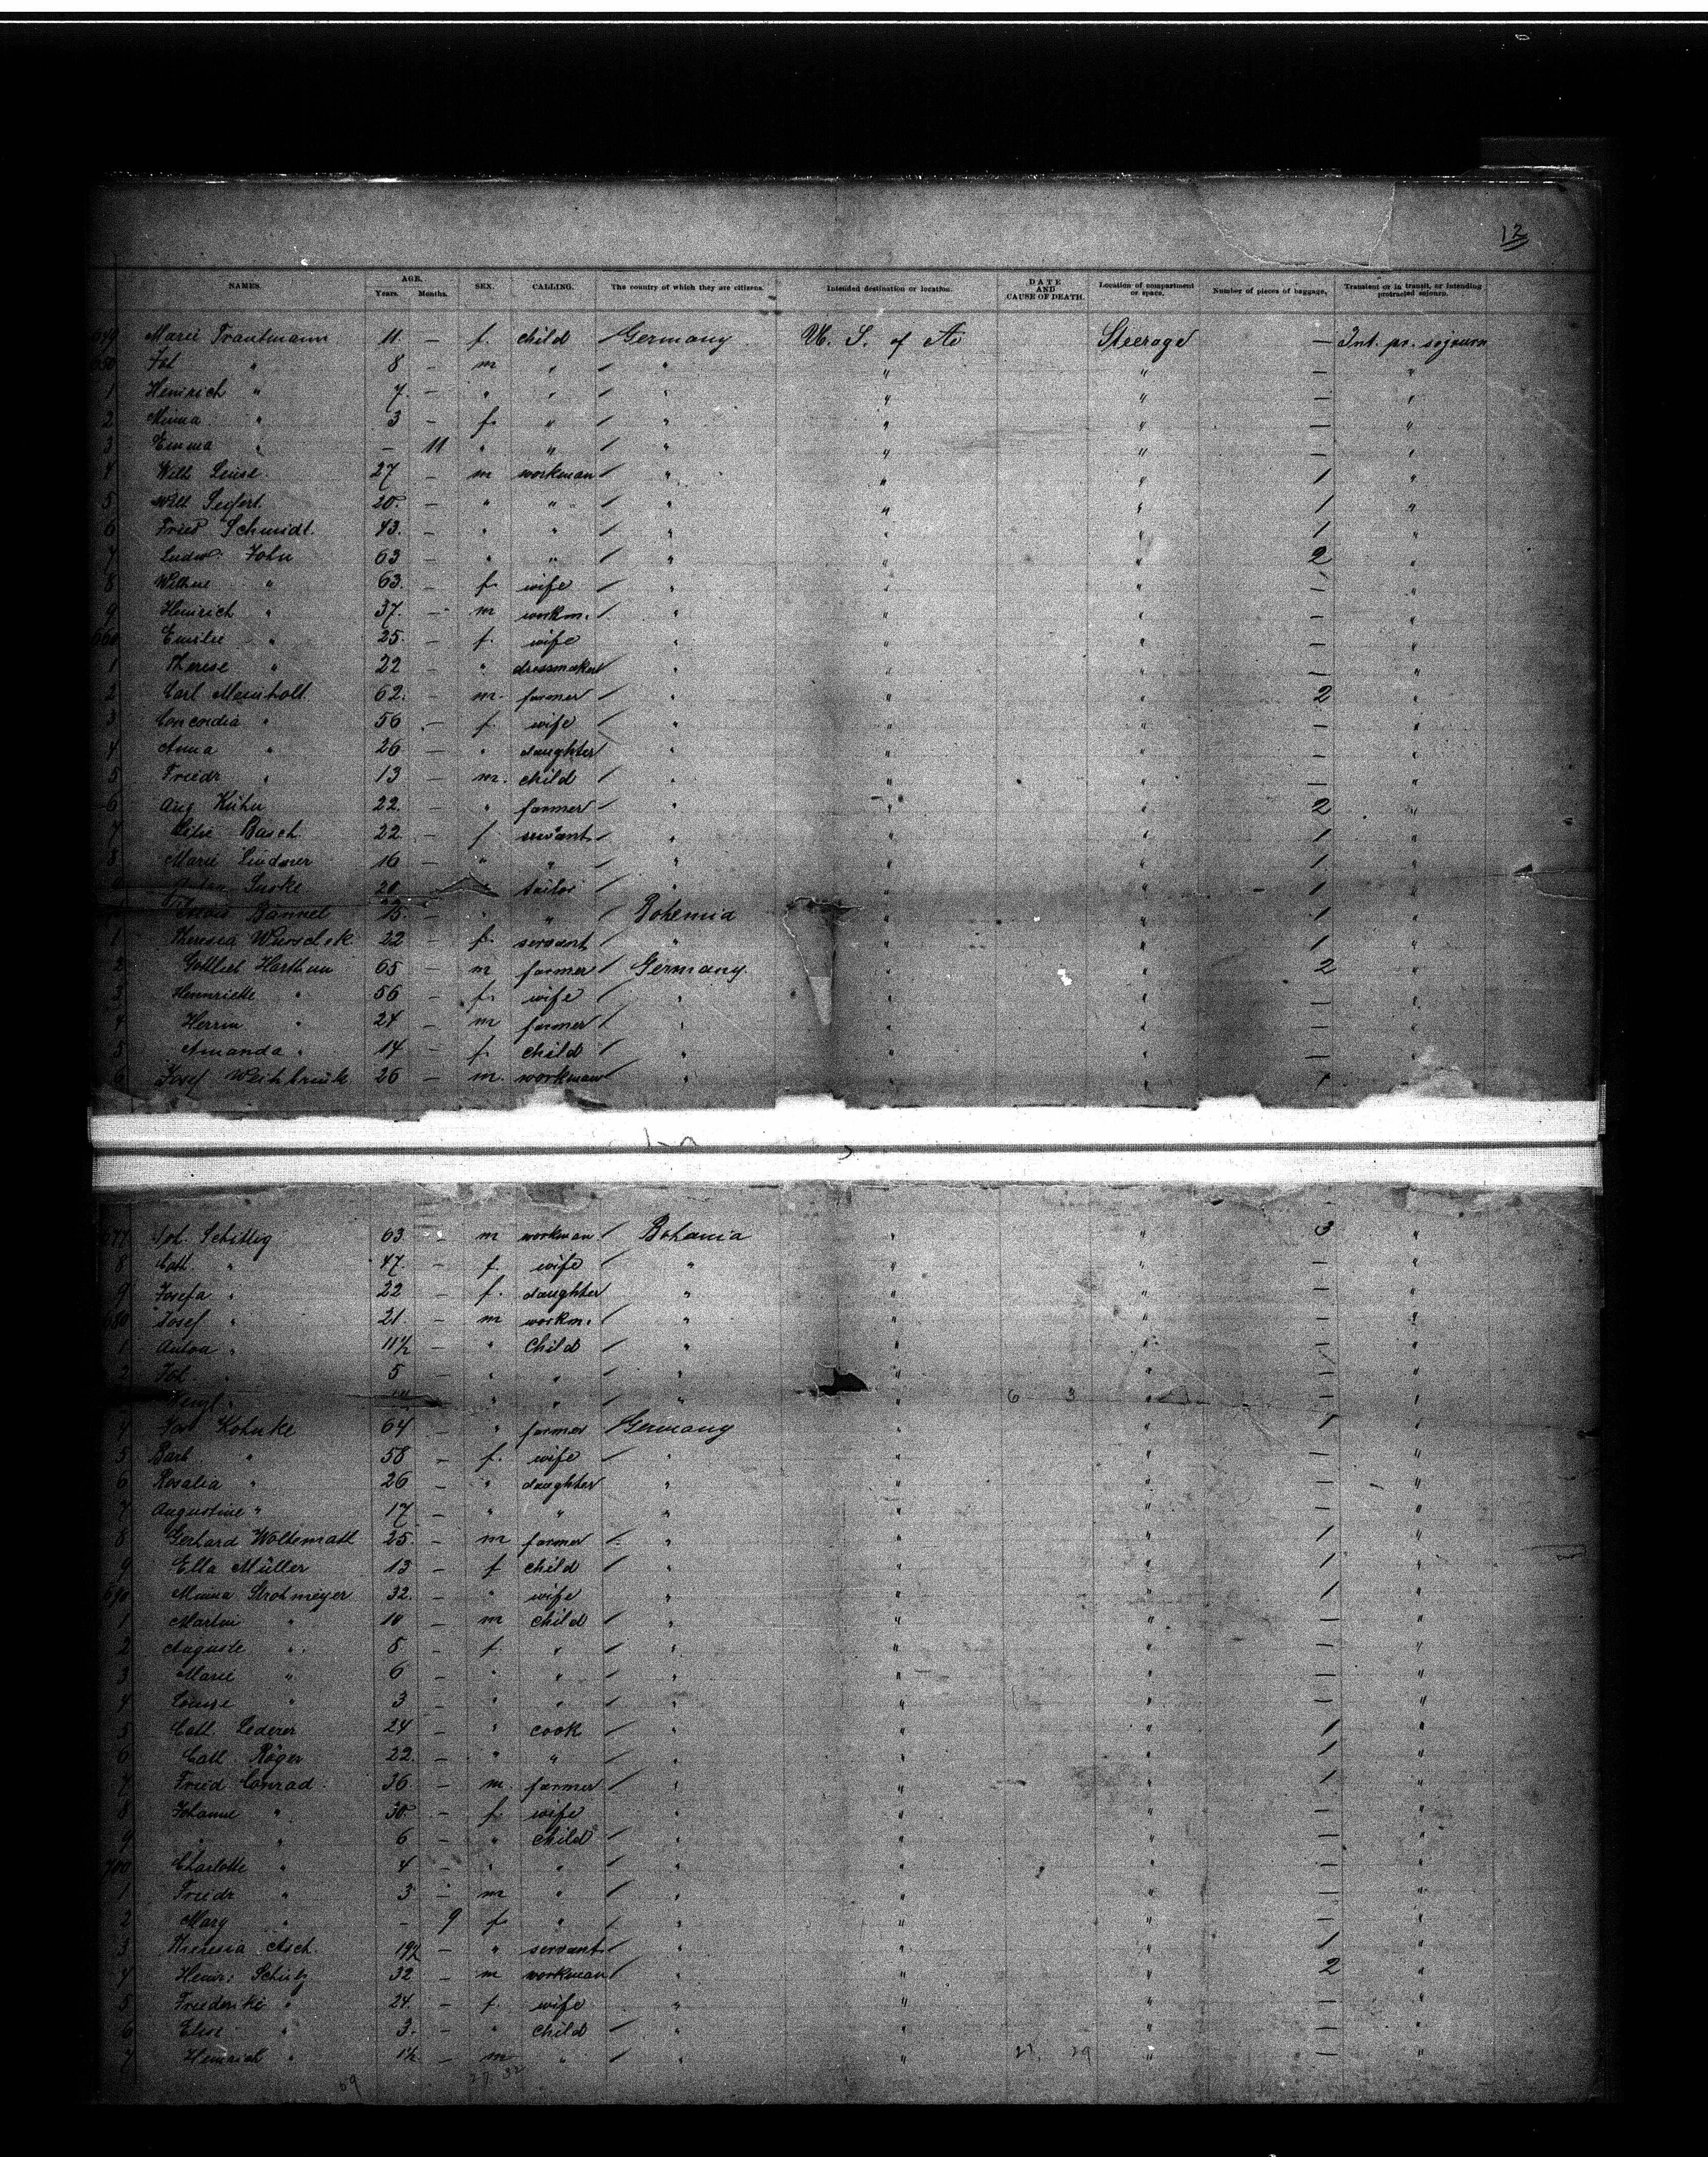 12
NAMES. AGE. Years. Months. SEX. CALLING. The country of which they are citizens. Intended destination or location. DATE AND CAUSE OF DEATH. Location of compartment or space. Number of pieces of baggage, Transient or in transit, or intending protracted sojourn.
649 Marie Trautmann 11 — f. child / Germany U. S. of A. Steerage — Int. pr. sojourn
650 Joh " 8 — m " / " " " — "
1 Heinrich " 7. — " " / " " " — "
2 Minna " 3 — f. " / " " " — "
3 Emma " — 11 " " / " " " — "
4 Wilh. 27 — m workman / " " " 1 "
5 Will 20. — " " / " " " 1 "
6 Fried Schmidt. 43. — " " / " " " 1 "
7 Ludw: John 63 — " " / " " " 2 "
8 " 63. — f. wife / " " " — "
9 Heinrich " 37. — m workm. / " " " — "
660 Emilie " 25. — f. wife / " " " — "
1 Therese " 22 — " dressmaker / " " " — "
2 Carl Meinholt 62. — m. farmer / " " " 2 "
3 Concordia " 56 — f. wife / " " " — "
4 Anna " 26 — " daughter / " " " — "
5 Friedr " 13 — m. child / " " " — "
6 Aug Kühn 22. — " farmer / " " " 2 "
7 Basch 22. — f servant / " " " 1 "
8 Marie Lindner 16 — " " / " " " 1 "
9 Anton 20 " tailor / " " " 1 "
Bännel 15. — " " / Bohemia " " 1 "
1 Theresia 22 — f. servant / " " " 1 "
2 Gottlieb 65 — m farmer / Germany " " 2 "
3 Henriette " 56 — f. wife / " " " — "
4 " 24 — m farmer / " " " — "
5 Amanda " 14 — f. child / " " " — "
6 Josef 26 — m. workman / " " " 1 "
677 Joh. Schittig 63 — m workman / Bohemia " " 3 "
8 Cath. " 47. — f. wife / " " " — "
9 Josefa " 22 — f. daughter " " " — "
680 Josef " 21. — m workm. " " " — "
1 Anton " 11½ — " child / " " " — "
2 Joh " 5 — " " / " " " — "
" " " " " 6 3 " — "
4 Kohnke 64 — " farmer / Germany " " 1 "
5 Barb. " 58 — f. wife / " " " — "
6 Rosalia " 26 — " daughter " " " — "
7 Augustine " 17 — " " / " " " — "
8 Gerhard Woltemath 25. — m farmer / " " " 1 "
9 Ella Müller 13 — f child / " " " 1 "
690 Minna Strohmeyer 32. — " wife / " " " 1 "
1 Martin " 10 — m child / " " " — "
2 Auguste " 8. — f. " / " " " — "
3 Marie " 6 — " " / " " " — "
4 Louise " 3 — " " / " " " — "
5 Cath. Lederer 24 — " cook / " " " 1 "
6 Cath. Röger 22. — " " / " " " 1 "
7 Fried Conrad. 36. — m. farmer / " " " 1 "
8 Johanne " 30 — f. wife / " " " — "
9 " " 6 — " child / " " " — "
700 Charlotte " 4 — " " / " " " — "
1 Friedr " 3 — m " / " " " — "
2 Marg " — 9 f. " / " " " — "
3 Theresia Asch. 19½ — " servant / " " " 1 "
4 Heinr: Schulz 32 — m workman / " " " 2 "
5 Friederike " 24. — f. wife / " " " — "
6 Elise " 3. — " child / " " " — "
7 Heinrich " 1½ — m " / " " 21. 29 " — "
69 27 32